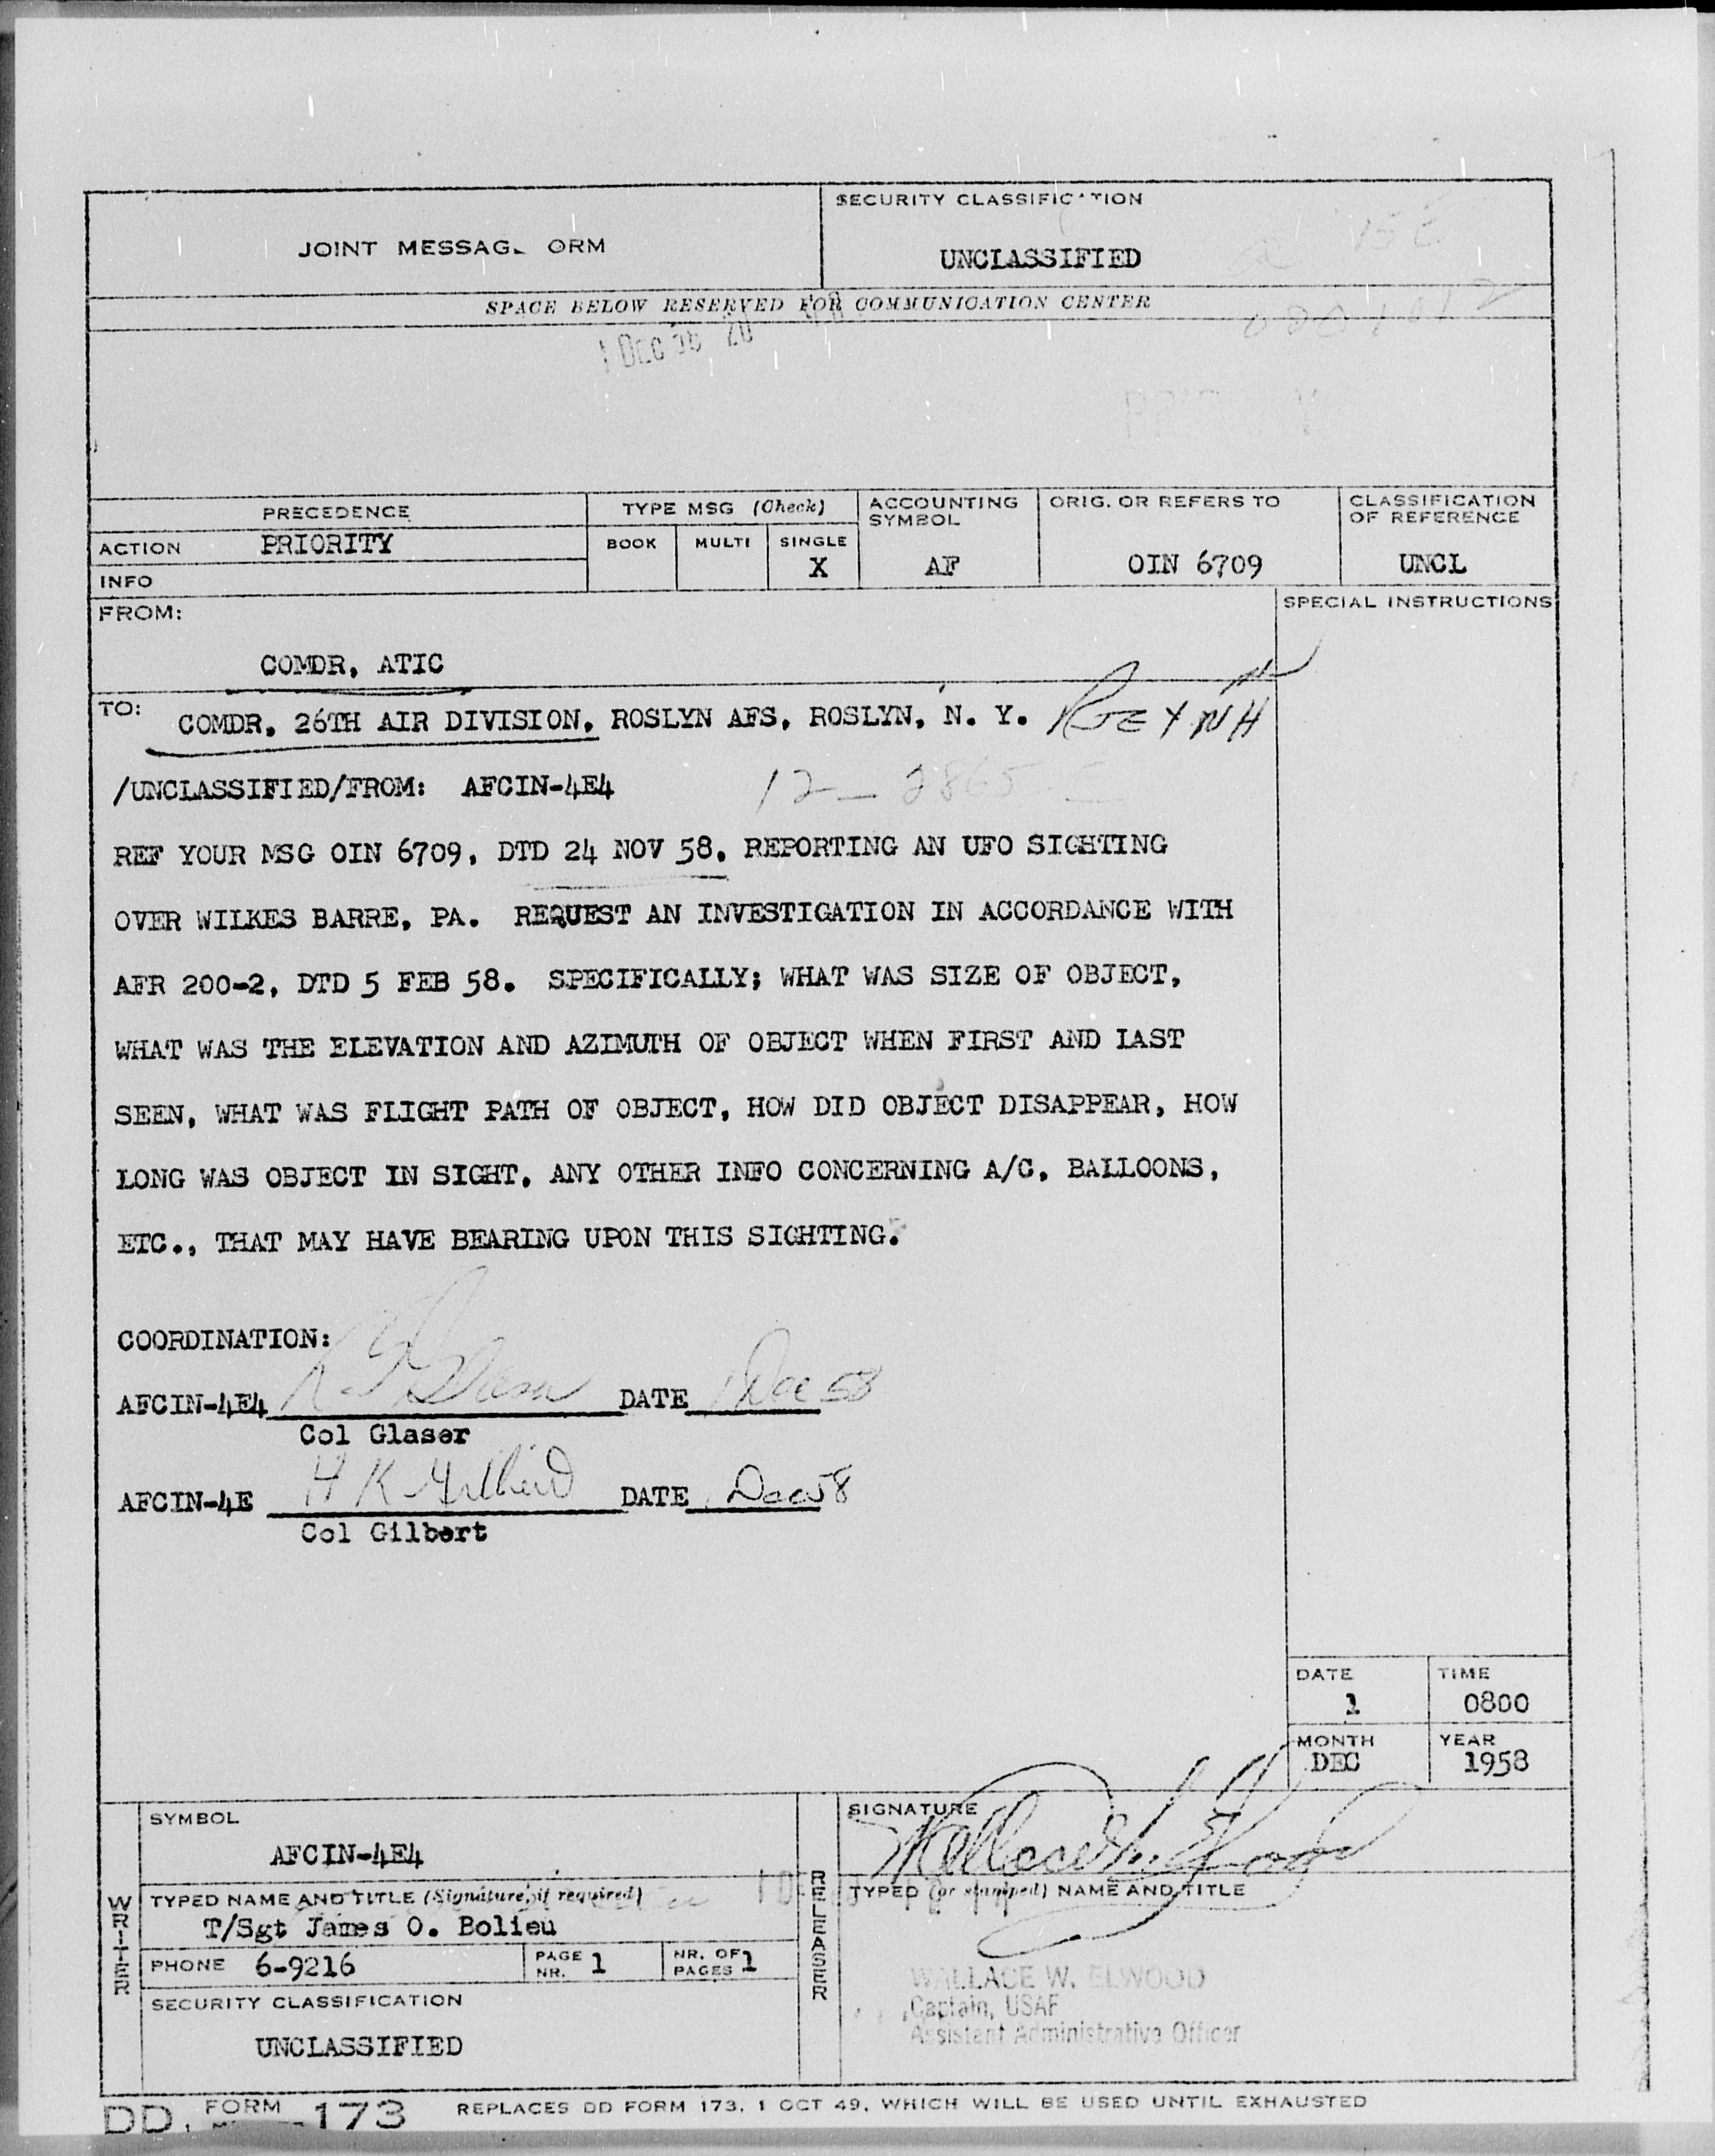 JOINT MESSAG ORM
SECURITY CLASSIFIC TION
UNCLASSIFIED
SPACE BELOW RESERVED FOR COMMUNICATION CENTER
1 DEC 58 20
PRECEDENCE
TYPE MSG (Check)
ACCOUNTING SYMBOL
ORIG. OR REFERS TO
CLASSIFICATION OF REFERENCE
ACTION PRIORITY
BOOK MULTI SINGLE
X AF OIN 6709 UNCL
INFO
FROM:
SPECIAL INSTRUCTIONS
COMDR, ATIC
TO: COMDR, 26TH AIR DIVISION, ROSLYN AFS, ROSLYN, N. Y.
/UNCLASSIFIED/FROM: AFCIN-4E4
REF YOUR MSG OIN 6709, DTD 24 NOV 58. REPORTING AN UFO SIGHTING
OVER WILKES BARRE, PA. REQUEST AN INVESTIGATION IN ACCORDANCE WITH
AFR 200-2, DTD 5 FEB 58. SPECIFICALLY; WHAT WAS SIZE OF OBJECT,
WHAT WAS THE ELEVATION AND AZIMUTH OF OBJECT WHEN FIRST AND LAST
SEEN, WHAT WAS FLIGHT PATH OF OBJECT, HOW DID OBJECT DISAPPEAR, HOW
LONG WAS OBJECT IN SIGHT. ANY OTHER INFO CONCERNING A/C, BALLOONS,
ETC., THAT MAY HAVE BEARING UPON THIS SIGHTING.
COORDINATION:
AFCIN-4E4 DATE 1 Dec 58
Col Glaser
AFCIN-4E H K Gilbert DATE Dec 58
Col Gilbert
DATE TIME
1 0800
MONTH YEAR
DEC 1958
SYMBOL
AFCIN-4E4
SIGNATURE
Wallace W. Elwood
WRITER
TYPED NAME AND TITLE (Signature, if required)
T/Sgt James O. Bolieu
RELEASER
TYPED (or stamped) NAME AND TITLE
PHONE 6-9216
PAGE NR. 1
NR. OF PAGES 1
WALLACE W. ELWOOD
Captain, USAF
Assistant Administrative Officer
SECURITY CLASSIFICATION
UNCLASSIFIED
DD, FORM 173 REPLACES DD FORM 173, 1 OCT 49, WHICH WILL BE USED UNTIL EXHAUSTED